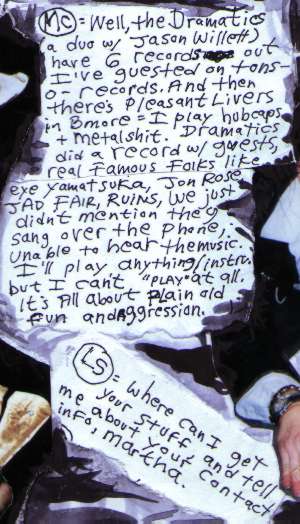 MC = Well, the Dramatics
a duo w/ Jason Willett)
have 6 records out
I've guested on tons-
o- records. And then
there's Pleasant Livers
in Bmore = I play hubcaps
+ metalshit. Dramatics
did a record w/ guests,
real Famous Folks like
eye yamatsuka, Jon Rose,
JAD FAIR, RUINS, We just
didn't mention they
sang over the phone,
unable to hear the music.
I'll play anything/instru.
but I can't "PLAY" at all.
It's All about Plain old
fun and Aggression.
LS = Where can I get
your stuff and tell
me about your contact
info, Martha.